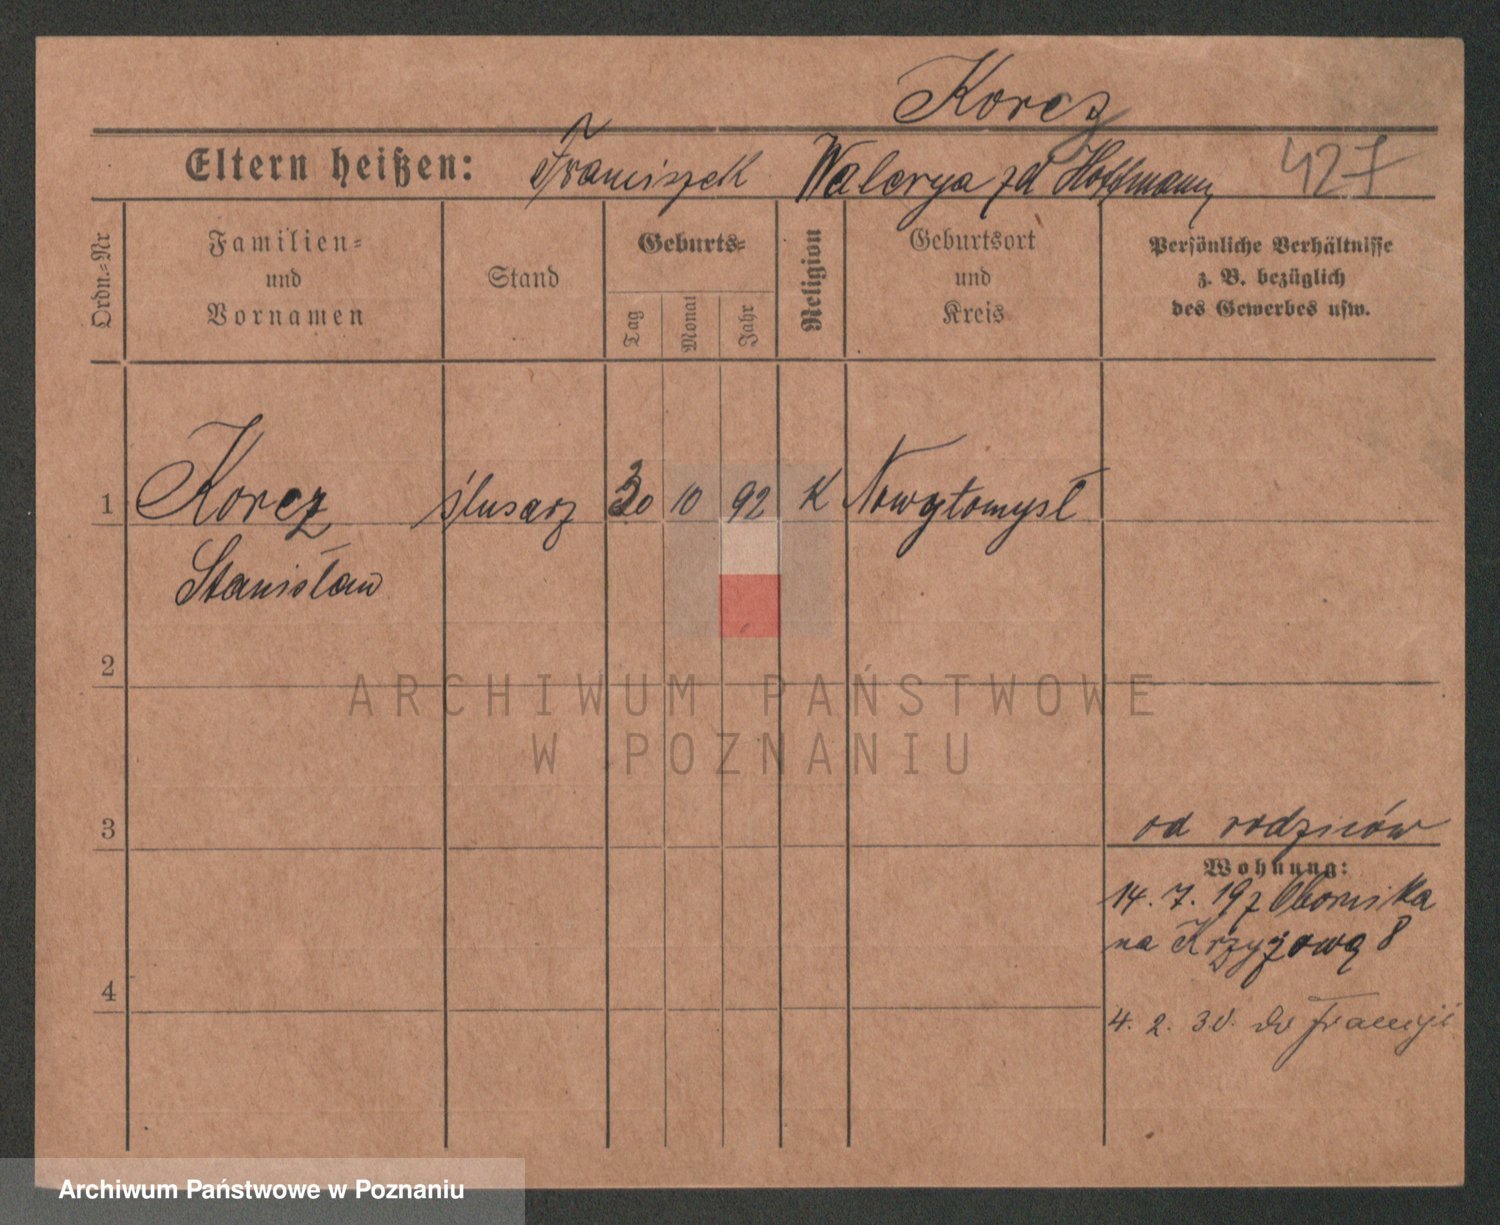 Korcz
Eltern heißen: Franciszek Walerya zd Hoffmann 427
Ordn.=Nr
Familien=
und
Vornamen
Stand
Geburts=
Tag
Monat
Jahr
Religion
Geburtsort
und
Kreis
Persönliche Verhältnisse
z. B. bezüglich
des Gewerbes usw.
1 Korcz ślusarz 30 10 92 K Nowytomysł
Stanisław
2
ARCHIWUM PAŃSTWOWE
W POZNANIU
3
od rodziców
Wohnung:
14. 7. 19 z Obornika
na Krzyżową 8
4
4. 2. 30. do Francji
Archiwum Państwowe w Poznaniu